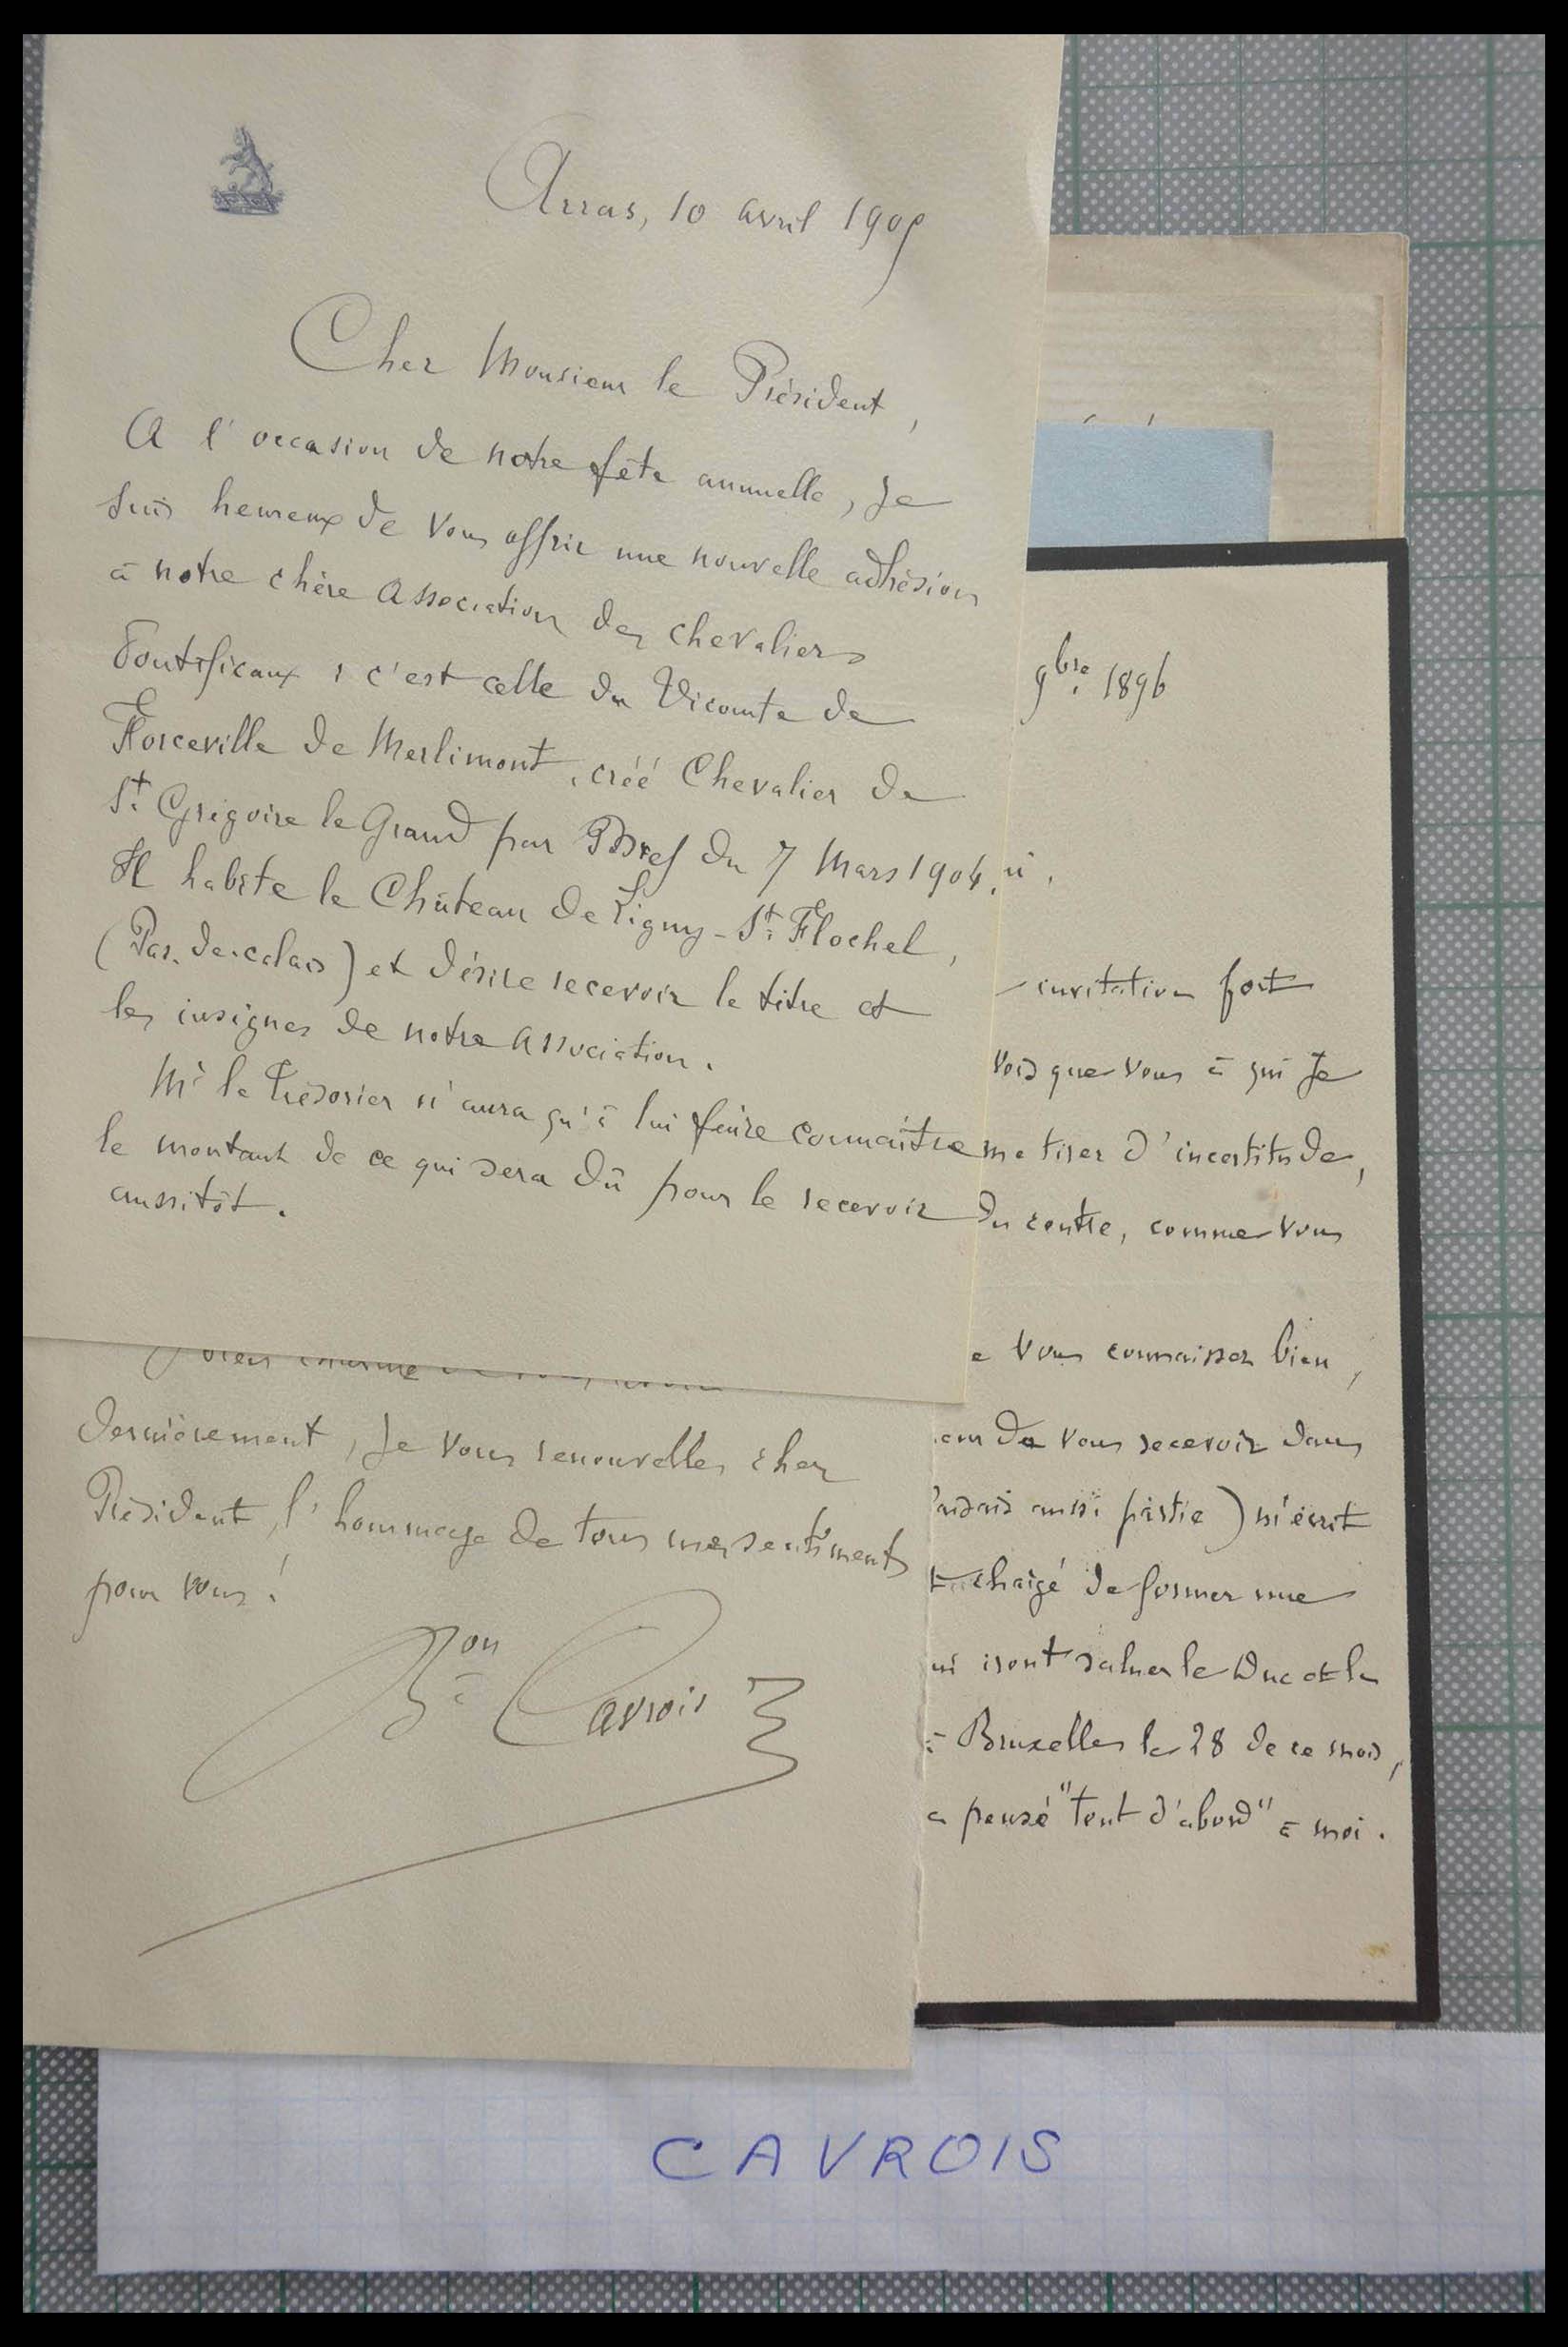 Arras, 10 avril 1905
Cher Monsieur le Président,
A l'occasion de notre fête annuelle, je
suis heureux de vous offrir une nouvelle adhésion
à notre chère association des chevaliers
Pontificaux : c'est celle du Vicomte de
Forceville de Merlimont, créé Chevalier de
St Grégoire le Grand par Bref du 7 Mars 1904.
Il habite le Château de Ligny-St Flochel,
(Pas-de-calais) et désire recevoir le titre et
les insignes de notre association.
Mr le Trésorier n'aura qu'à lui faire connaître
le montant de ce qui sera dû pour le recevoir
aussitôt.
dernièrement, je vous renouvelle, cher
Président, l'hommage de tous mes sentiments
pour vous !
Bon Cavrois
9bre 1896
invitation fort
vois que vous à qui je
me tirer d'incertitude,
du centre, comme vous
e vous connaissez bien,
eur de vous recevoir dans
faisais aussi partie) m'écrit
chargé de former une
ui iront saluer le Duc et la
à Bruxelles le 28 de ce mois,
a pensé "tout d'abord" à moi.
CAVROIS